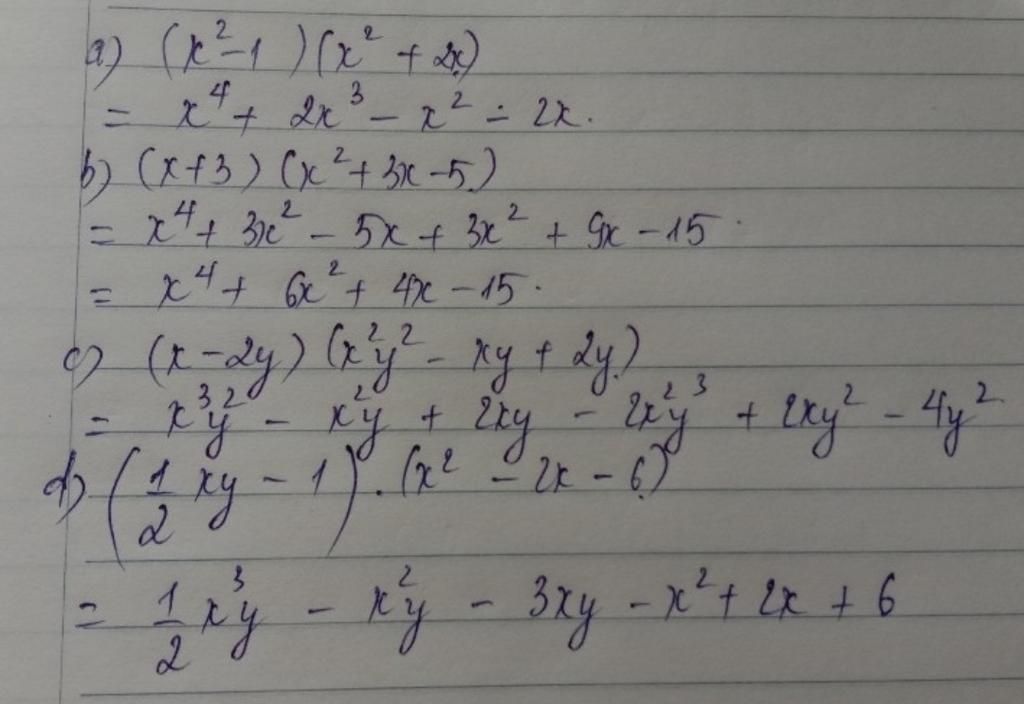 a) (x² - 1)(x² + 2x)
= x⁴ + 2x³ - x² - 2x.
b) (x + 3)(x² + 3x - 5)
= x⁴ + 3x² - 5x + 3x² + 9x - 15.
= x⁴ + 6x² + 4x - 15.
c) (x - 2y)(x²y² - xy + 2y)
= x³y² - x²y + 2xy - 2x²y³ + 2xy² - 4y²
d) (1/2 xy - 1) . (x² - 2x - 6)
= 1/2 x³y - x²y - 3xy - x² + 2x + 6